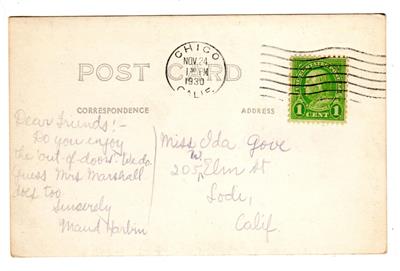 CHICO
NOV. 24
1930
CALIF.
POST CARD
CORRESPONDENCE
ADDRESS
UNITED STATES POSTAGE
1 CENT 1
Dear Friends! -
Do you enjoy
the "out-of-doors" We do
guess Mrs Marshall
does too
Sincerely
Maud Harbin
Miss Ida Gove
205 W. Elm St
Lodi,
Calif.